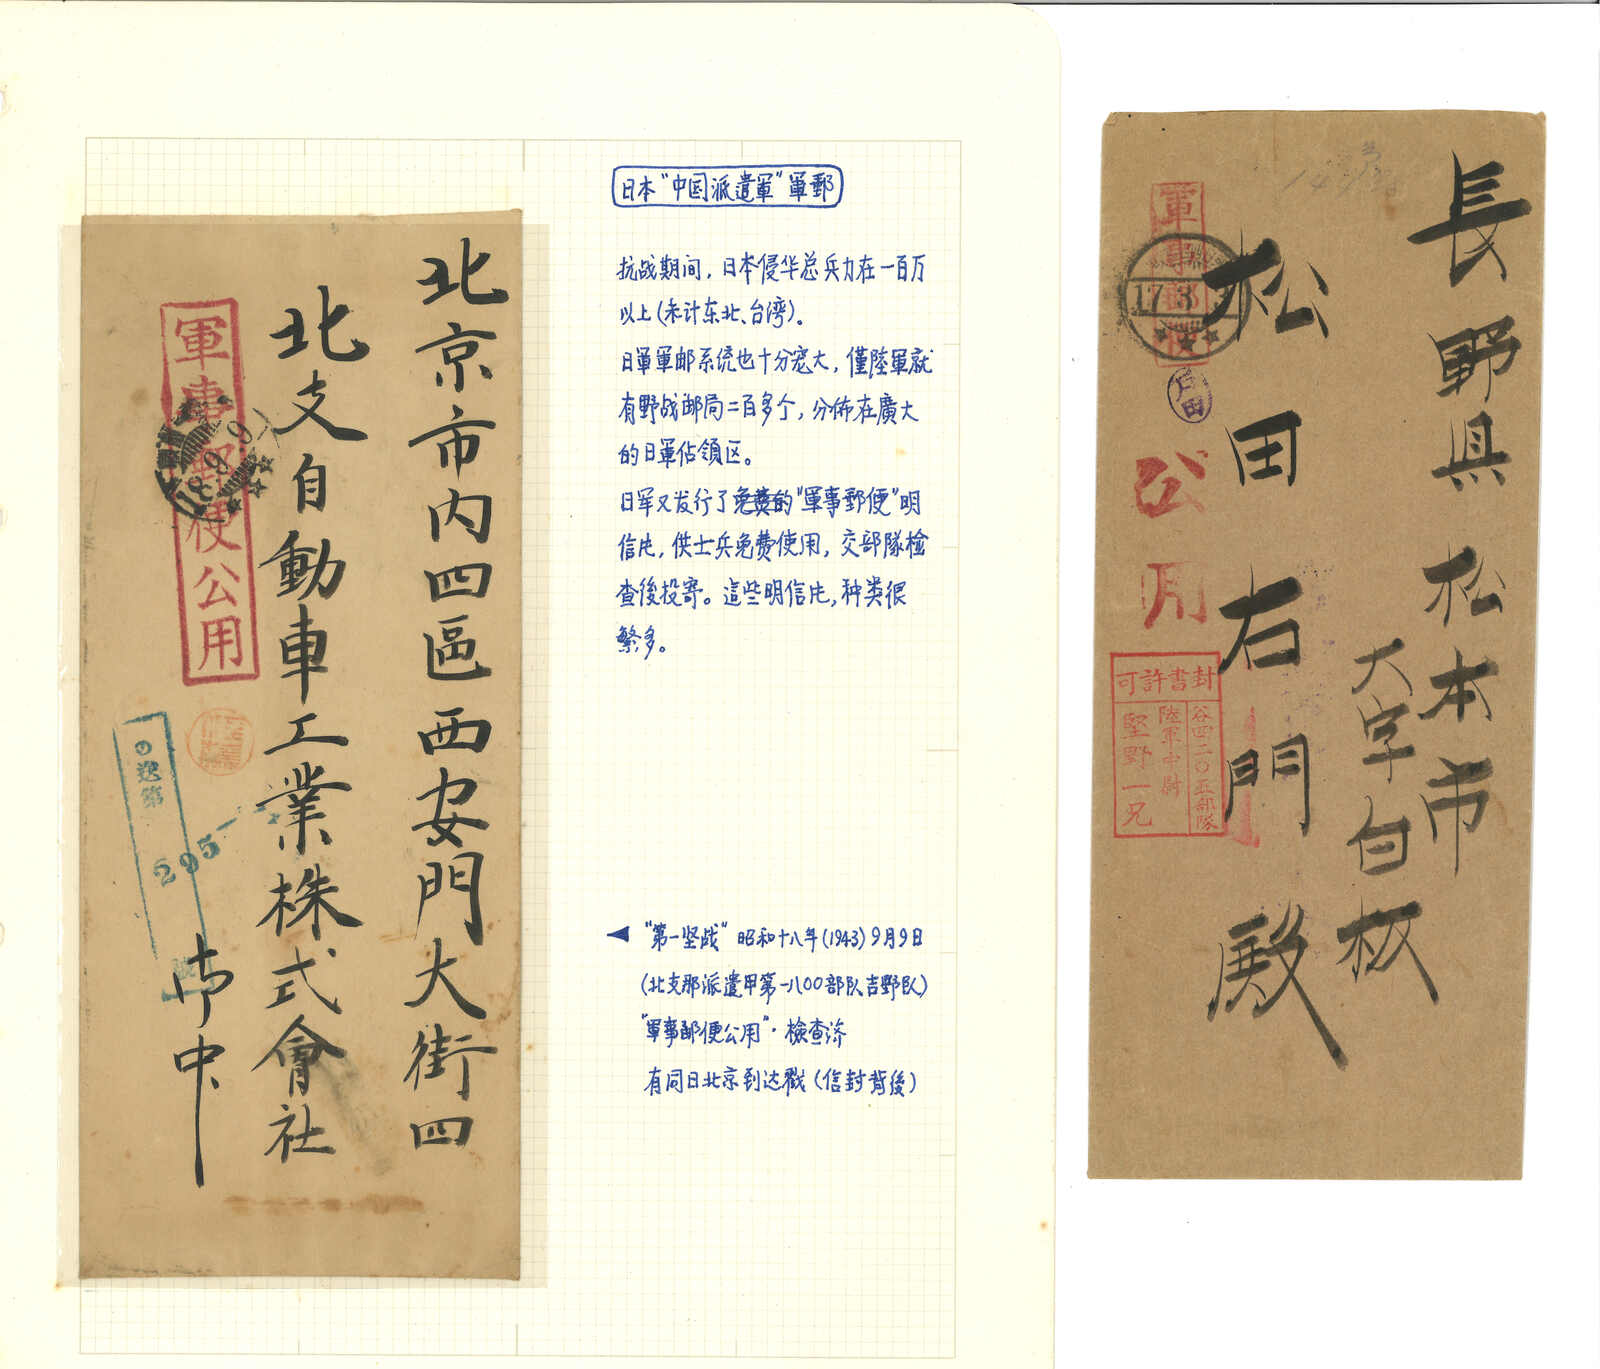 北京市内四區西安門大街四
北支自動車工業株式會社
御中
軍事郵便公用
18.9.9
の逓第
295
日本“中国派遣軍”軍郵
抗战期间，日本侵华总兵力在一百万
以上(未计东北、台湾)。
日軍軍邮系统也十分宠大，僅陸軍就
有野战邮局二百多个，分佈在廣大
的日軍佔領区。
日军又发行了免费的“軍事郵便”明
信片，供士兵免费使用，交部隊检
查後投寄。這些明信片，种类很
繁多。
“第一坚战” 昭和十八年(1943)9月9日
(北支那派遣甲第一八00部队吉野队)
“軍事郵便公用”·檢查済
有同日北京到达戳(信封背後)
長野県松本市
大字白板
松田右門殿
軍事郵便
17.3
戸田
公用
封書許可
谷四二〇五部隊
陸軍中尉
堅野一兄